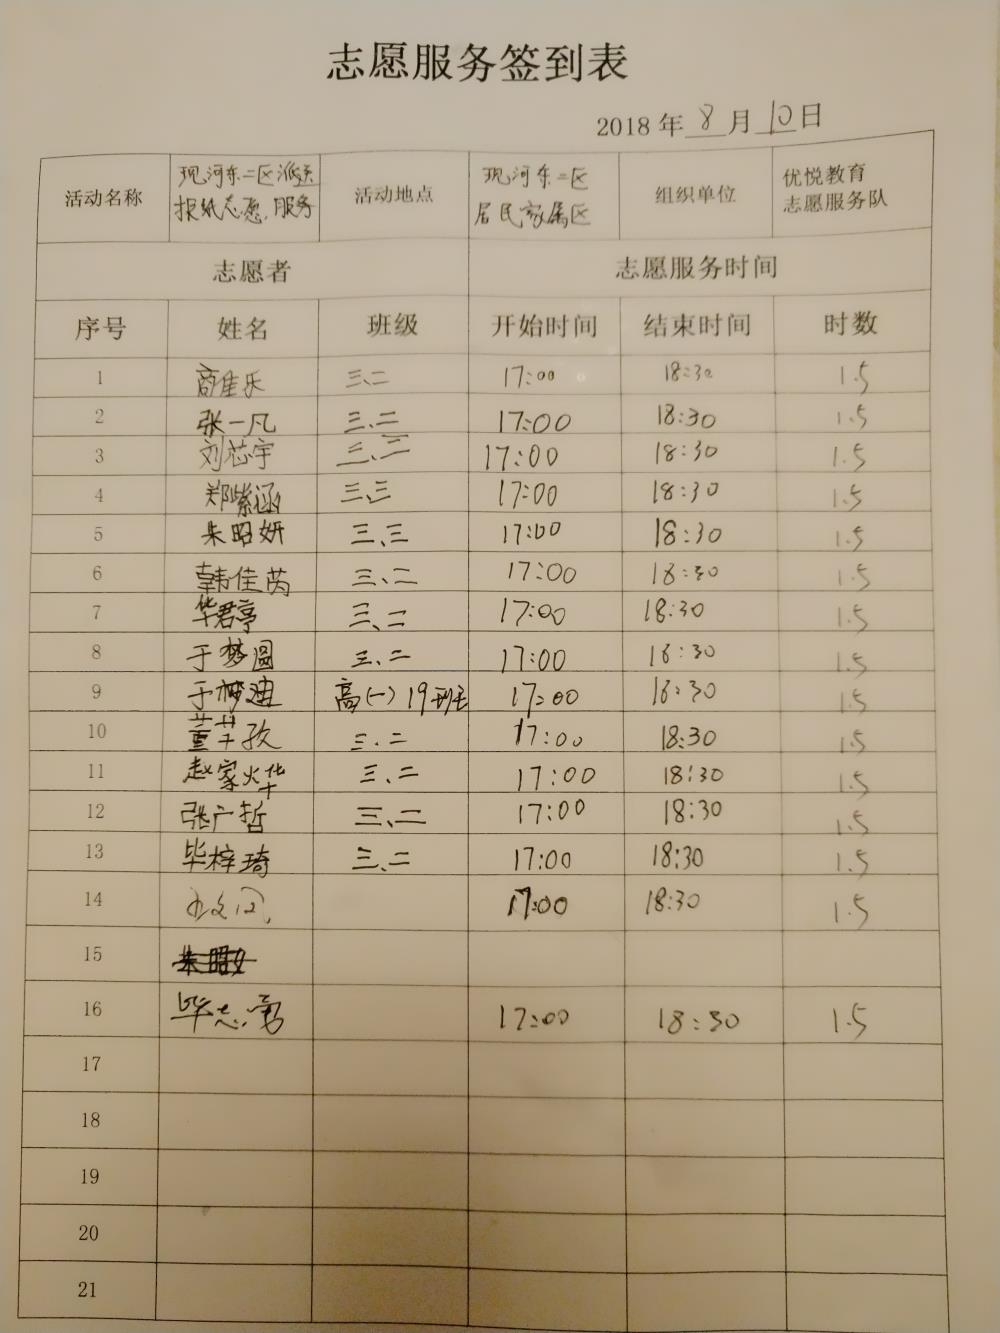 志愿服务签到表
2018 年 8 月 10 日
活动名称 现河东二区派送报纸志愿服务 活动地点 现河东二区居民家属区 组织单位 优悦教育志愿服务队
志愿者 志愿服务时间
序号 姓名 班级 开始时间 结束时间 时数
1 商佳乐 三、二 17:00 18:30 1.5
2 张一凡 三、二 17:00 18:30 1.5
3 刘芯宇 三、二 17:00 18:30 1.5
4 郑紫涵 三、三 17:00 18:30 1.5
5 朱昭妍 三、三 17:00 18:30 1.5
6 韩佳芮 三、二 17:00 18:30 1.5
7 华君亭 三、二 17:00 18:30 1.5
8 于梦圆 三、二 17:00 18:30 1.5
9 于梦迪 高(一)19班 17:00 18:30 1.5
10 董 孜 三、二 17:00 18:30 1.5
11 赵家烨 三、二 17:00 18:30 1.5
12 张广哲 三、二 17:00 18:30 1.5
13 毕梓琦 三、二 17:00 18:30 1.5
14 17:00 18:30 1.5
15
16 毕志勇 17:00 18:30 1.5
17
18
19
20
21